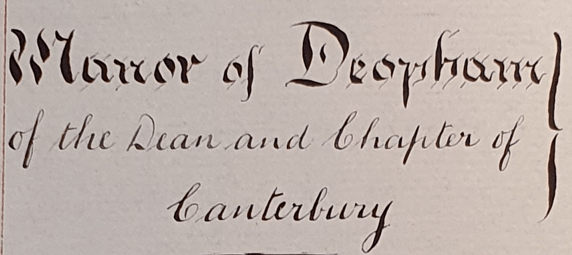 Manor of Deopham
of the Dean and Chapter of
Canterbury